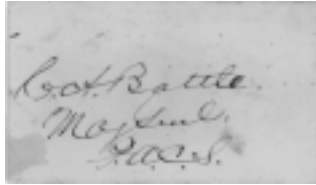 C. A. Battle.
Maj Genl.
P.A.C.S.